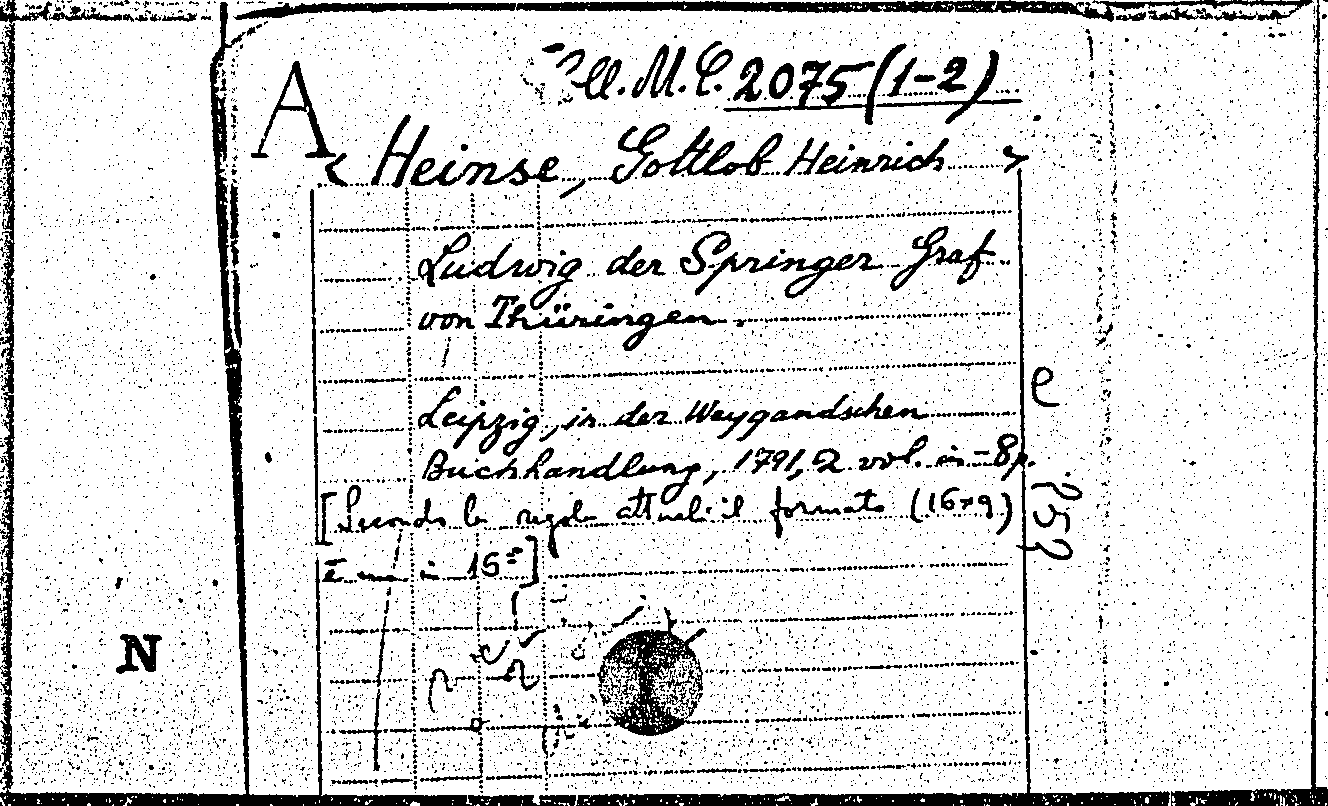 A
Coll. M. C. 2075 (1-2)
< Heinse, Gottlob Heinrich >
Ludwig der Springer Graf
von Thüringen.
Leipzig, in der Weygandschen
Buchhandlung, 1791, 2 vol. in-8p.
[Secondo la regola attuale il formato (16×9)
in 15°]
e
N